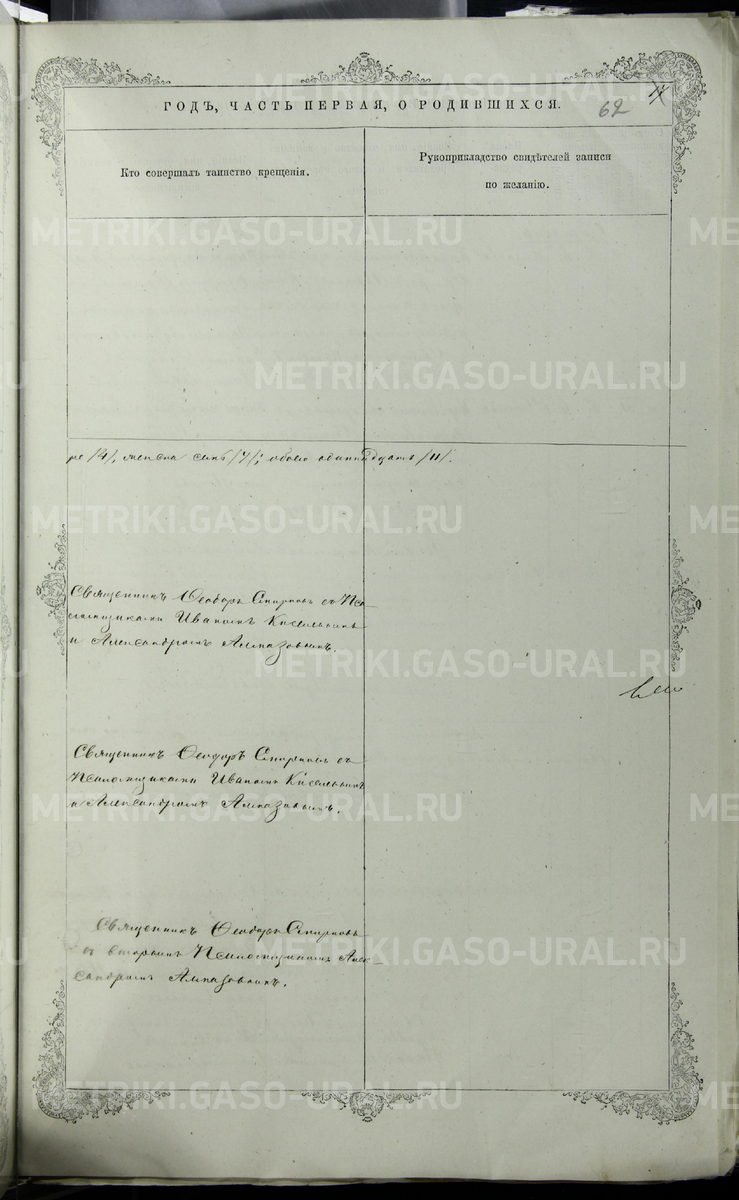 ГОДЪ, ЧАСТЬ ПЕРВАЯ, О РОДИВШИХСЯ.
62
Кто совершалъ таинство крещенія.
Рукоприкладство свидѣтелей записи
по желанію.
ре /4/, женска семь /7/; обоего одиннадцать /11/.
Священникъ Ѳеодоръ Смирновъ съ Пса-
ломщиками Иваномъ Кисельнимъ
и Александромъ Алмазовымъ.
Священникъ Ѳеодоръ Смирновъ съ
Псаломщиками Иваномъ Кисельнимъ
и Александромъ Алмазовымъ.
Священникъ Ѳеодоръ Смирновъ
съ вторымъ Псаломщикомъ Алек-
сандромъ Алмазовымъ.
METRIKI.GASO-URAL.RU